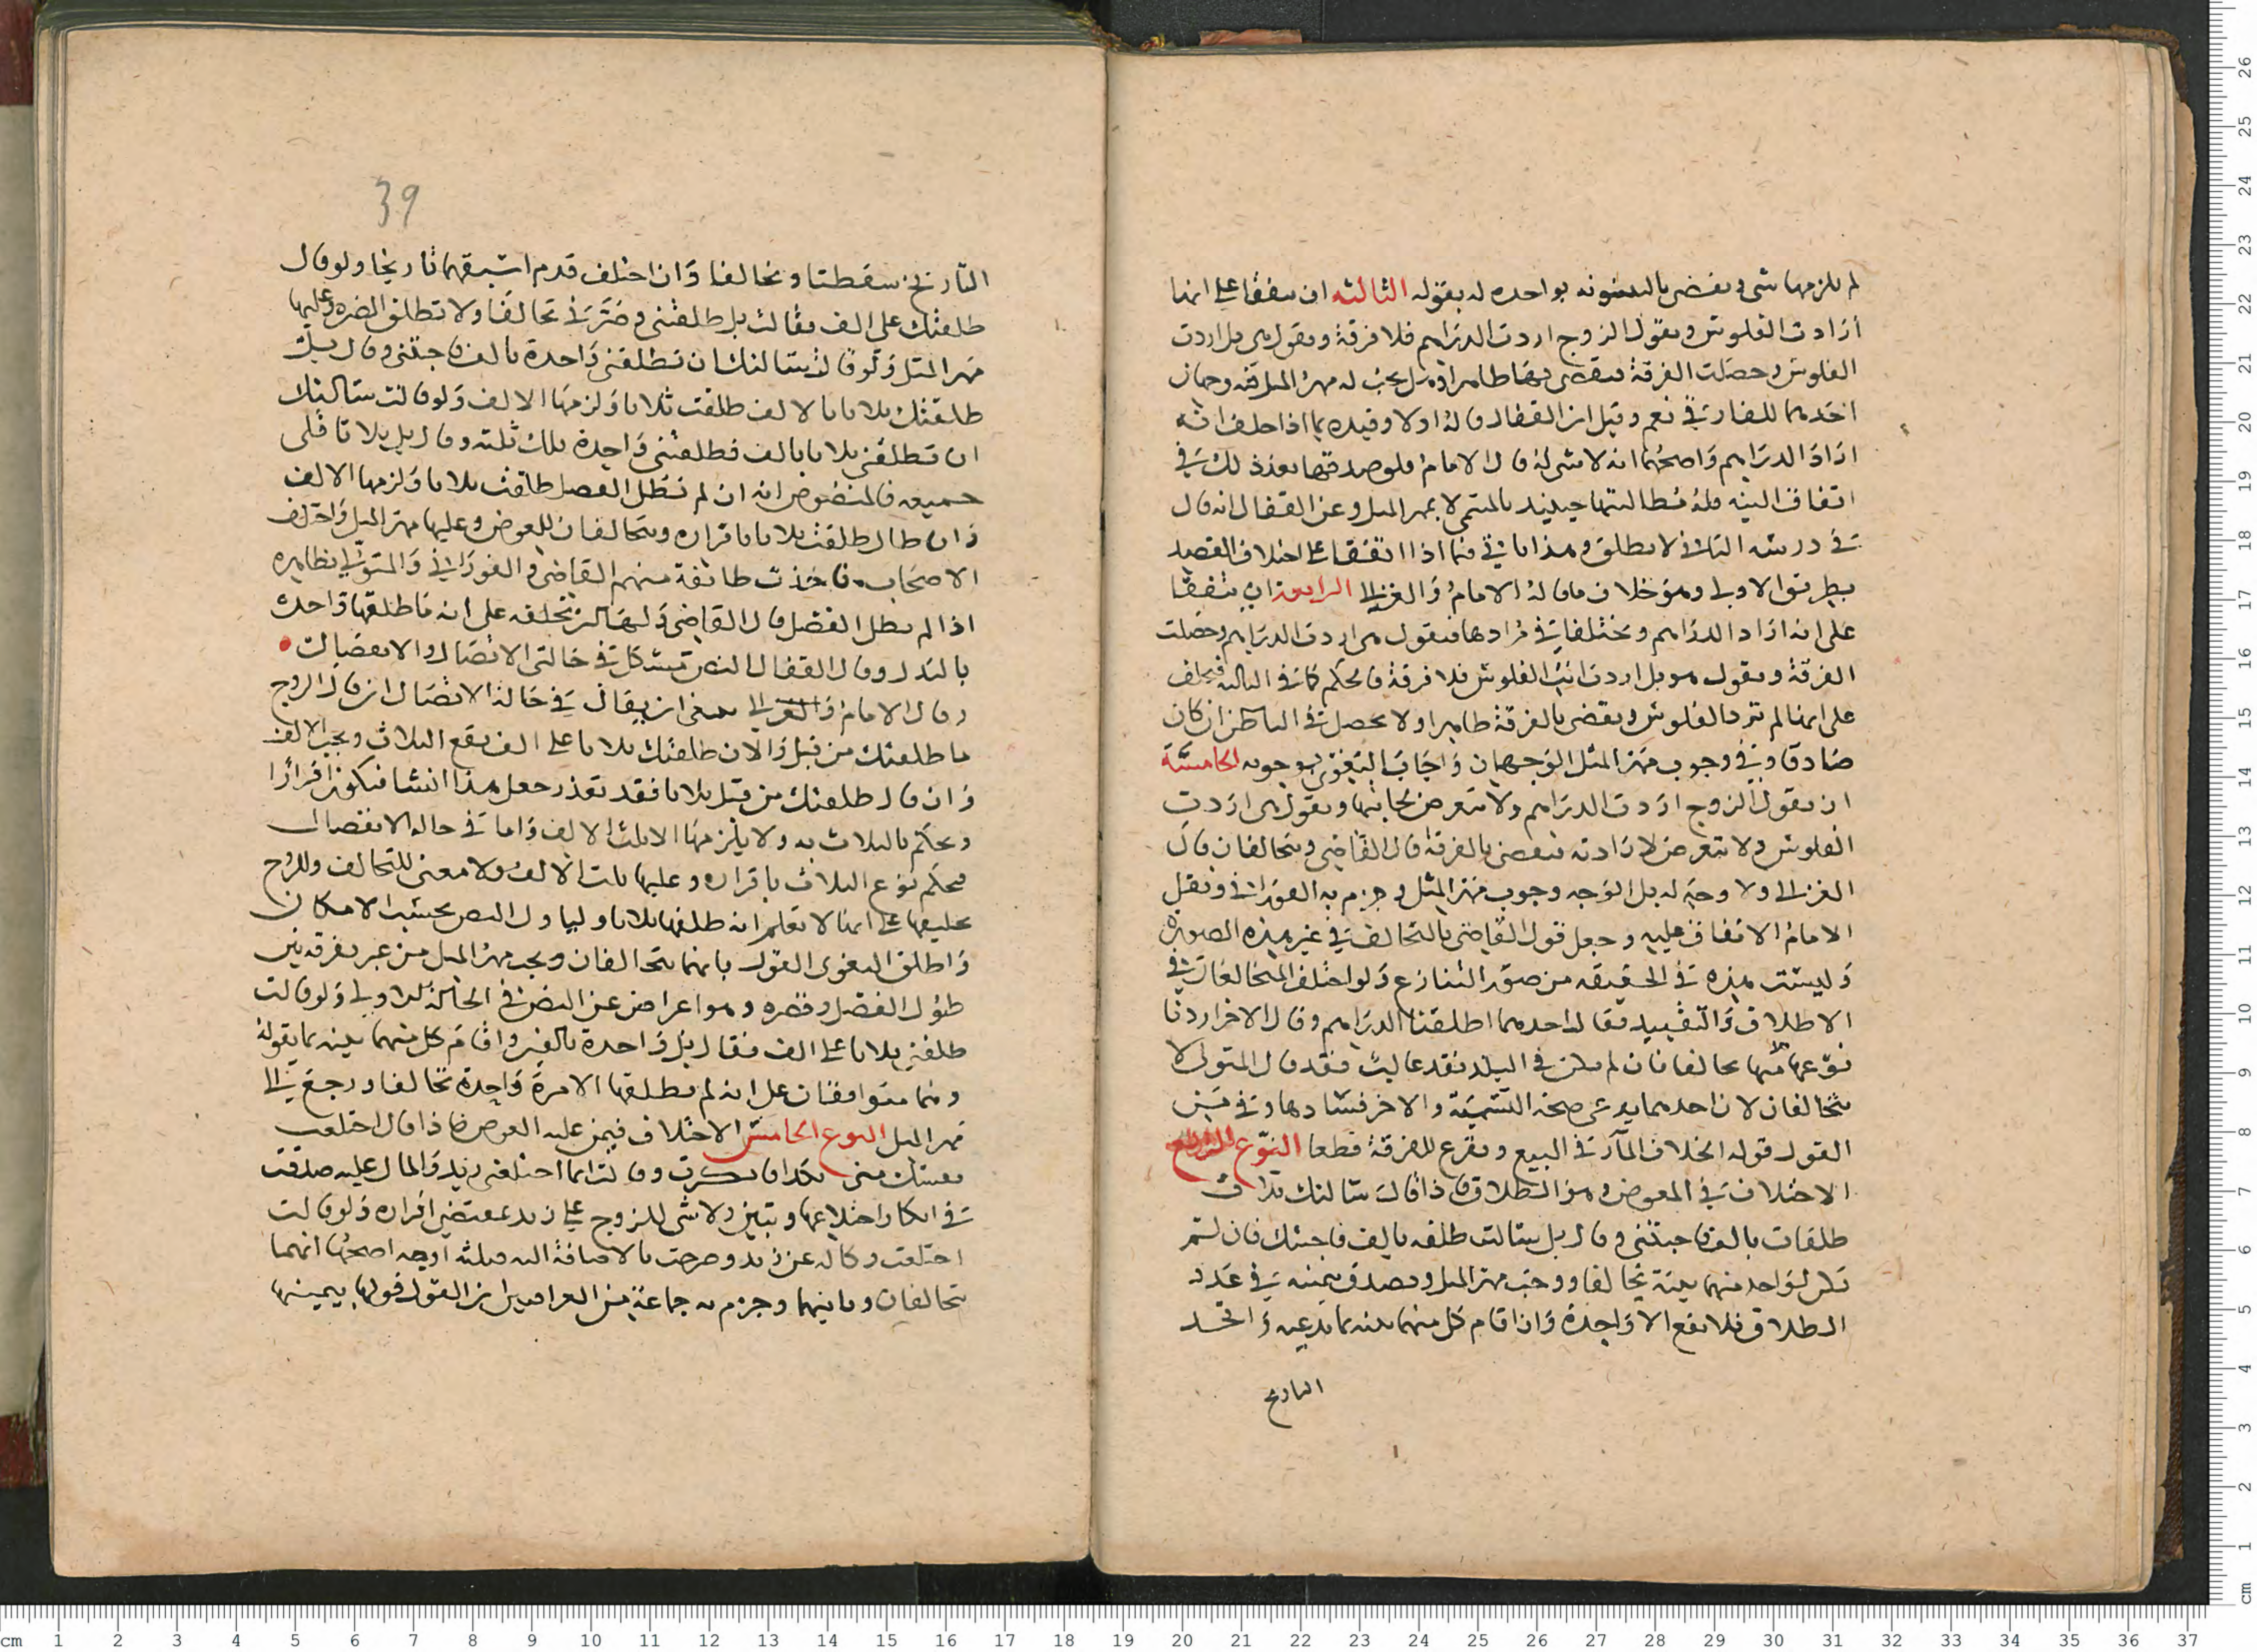 لم يلزمها شى ويقضى بالبينونه بواحده له بقوله الثالثه ان يتفقا على انها
أرادت الفلوس ويقول الزوج اردت الدراهم فلا فرقة ويقول هى بل اردت
الفلوس وحصلت الفرقة فيقضى بها ظاهرا وهل يجب له مهر المثل فيه وجهان
احدهما للقفال نعم وقيل ان القفال قاله اولا وقيده بما اذا حلف انه
اراد الدراهم واصحهما انه لا شى له قال الامام فلو صدقها بعد ذلك فى
اتفاق النيه فله مطالبتها حينئذ بالمسمى لا بمهر المثل وعن القفال انه قال
فى درسه الثانى لا يطلق وهذا ياتى فيما اذا اتفقا على اختلاف القصد
بطريق الاولى وهو خلاف ما قاله الامام والغزالى الرابعة ان يتفقا
على انه اراد الدراهم ويختلفا فى مرادها فيقول هى اردت الدراهم وحصلت
الفرقة ويقول هو بل اردت انت الفلوس فلا فرقة فالحكم كما فى الثالثه فيحلف
على انها لم ترد الفلوس ويقضى بالفرقة ظاهرا ولا يحصل فى الباطن ان كان
صادقا وفى وجوب مهر المثل الوجهان واجاب البغوى بوجوبه الخامسة
ان يقول الزوج اردت الدراهم ولا يتعرض لجانبها وتقول هى اردت
الفلوس ولا تتعرض لارادته فيقضى بالفرقة قال القاضى ويتحالفان قال
الغزالى ولا وجه له بل الوجه وجوب مهر المثل وجزم به الفورانى ونقل
الامام الاتفاق عليه وجعل قول القاضى بالتحالف فى غير هذه الصورة
وليست هذه فى الحقيقه من صور التنازع ولو اختلف المتخالعان فى
الاطلاق والتقييد فقال احدهما اطلقنا الدراهم وقال الاخر اردنا
نوعا منها تحالفا فان لم يكن فى البلد نقد غالب فقد قال المتولى لا
يتحالفان لان احدهما يدعى صحة التسمية والاخر فسادها وفى من
القول قوله الخلاف المار فى البيع ويقرع للفرقة قطعا النوع الرابع
الاختلاف فى المعوض وهو الطلاق فاذا قالت سالتك ثلاث
طلقات بالف فاجبتنى وقال بل سالت طلقه بالف فاجبتك فان لم
يكن لواحد منهما بينة تحالفا ووجب مهر المثل ويصدق بيمينه فى عدد
الطلاق فلا يقع الا واحدة وان اقام كل منهما بينه بما يدعيه واتحد
التاريخ
39
التاريخ سقطتا وتحالفا وان اختلف قدم اسبقهما تاريخا ولو قال
طلقتك على الف فقالت بل طلقتنى وضرتى تحالفا ولا تطلق الضره وعليها
مهر المثل ولو قالت سالتك ان تطلقنى واحدة بالف فاجبتنى وقال بل
طلقتك ثلاثا بالالف طلقت ثلاثا ولزمها الالف ولو قالت سالتك
ان تطلقنى ثلاثا بالف فطلقتنى واحدة فلك ثلثه وقال بل ثلاثا فلى
جميعه فالمنصوص انه ان لم يطل الفصل طلقت ثلاثا ولزمها الالف
وان طال طلقت ثلاثا باقراره ويتحالفان للعوض وعليها مهر المثل واختلف
الاصحاب فاخذت طائفة منهم القاضى والفورانى والمتولى بظاهره
اذا لم يطل الفصل قال القاضى ولها ان تحلفه على انه ما طلقها واحدة
بالثلث وقال القفال النص مشكل فى حالتى الاتصال والانفصال
وقال الامام والغزالى ينبغى ان يقال فى حالة الاتصال ان قال الزوج
ما طلقتك من قبل والان طلقتك ثلاثا على الف يقع الثلاث ويجب الالف
وان قال طلقتك من قبل ثلاثا فقد تعذر جعل هذا انشا فيكون اقرارا
ويحكم بالثلاث به ولا يلزمها الا ثلث الالف واما فى حالة الانفصال
فيحكم بوقوع الثلاث باقراره وعليها ثلث الالف ولا معنى للتحالف وللزوج
تحليفها على انها لا تعلم انه طلقها ثلاثا وليا ول النص بحسب الامكان
واطلق البغوى القول بانهما يتحالفان ويجب مهر المثل من غير تفرقه بين
طول الفصل وقصره وهو اعراض عن النص فى الحالة الاولى ولو قالت
طلقنى ثلاثا على الف فقال بل واحدة بالفين واقام كل منهما بينه بما يقوله
وهما متوافقان على انه لم يطلقها الا مرة واحدة تحالفا ورجع الى
مهر المثل النوع الخامس الاختلاف فيمن عليه العوض فاذا قال اختلعت
نفسك منى بكذا فانكرت وقالت انما اختلعنى زيد والمال عليه صدقت
فى انكار اختلاعها وتبين ولا شى للزوج على زيد بمقتضى اقراره ولو قالت
اختلعت وكاله عن زيد وصرحت بالاضافة اليه فثلثه اوجه اصحها انهما
يتحالفان وثانيهما وجزم به جماعة من العراقيين ان القول قولها بيمينها